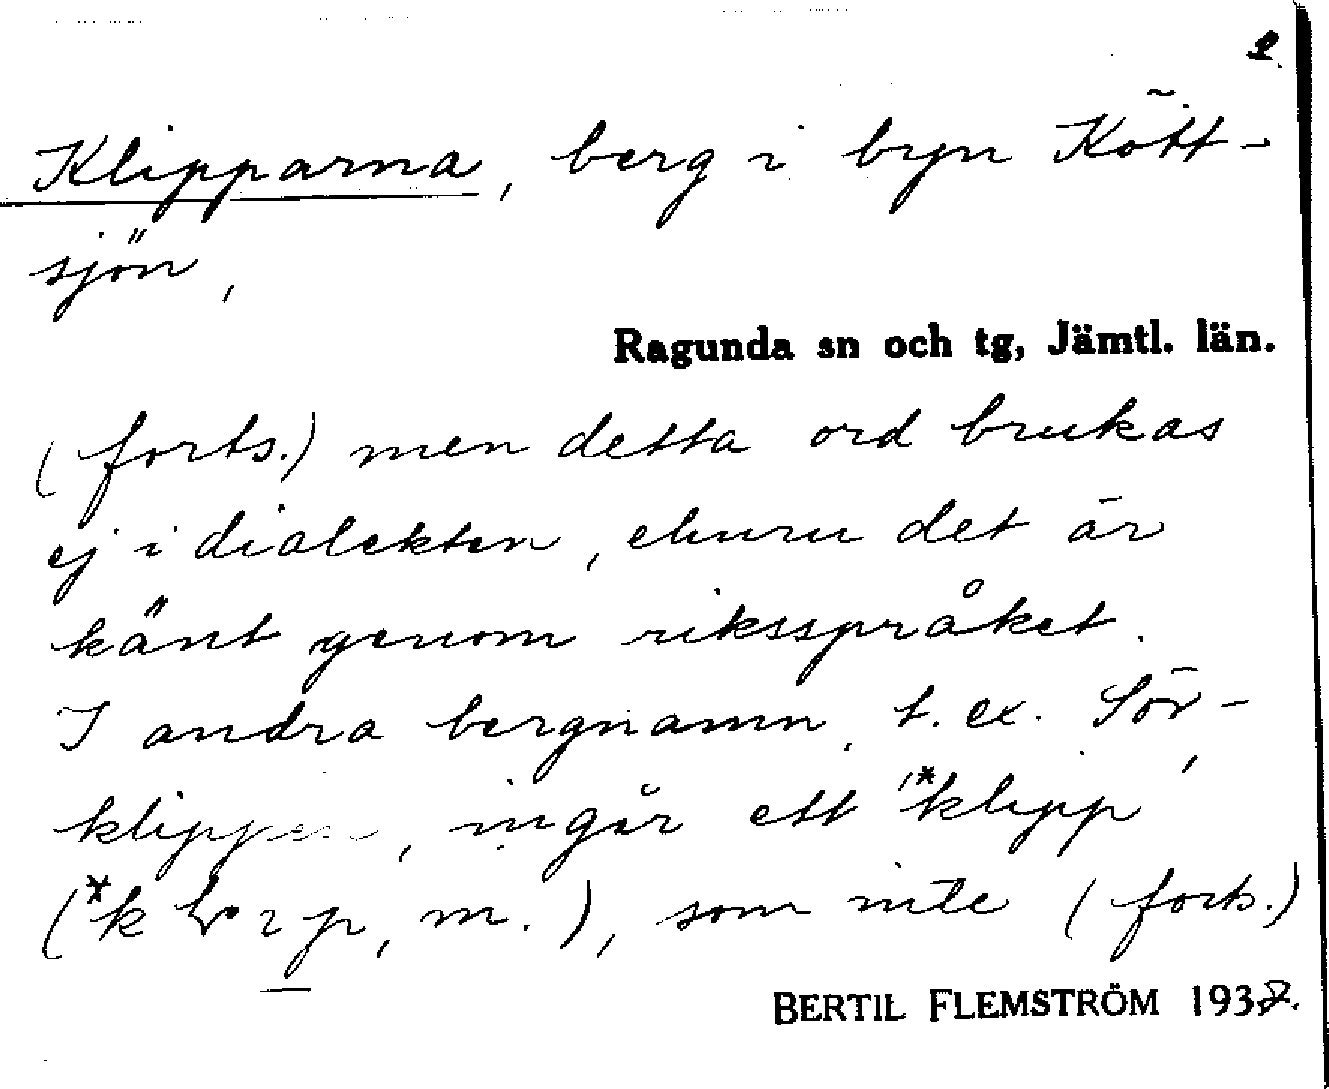 2.
Klipparna, berg i byn Kött-
sjön,
Ragunda sn och tg, Jämtl. län.
(forts.) men detta ord brukas
ej i dialekten, ehuru det är
känt genom riksspråket.
I andra bergnamn, t.ex. Sör-
klippen, ingår ett *klipp
(*k, m.), som inte (forts.)
BERTIL FLEMSTRÖM 1938.